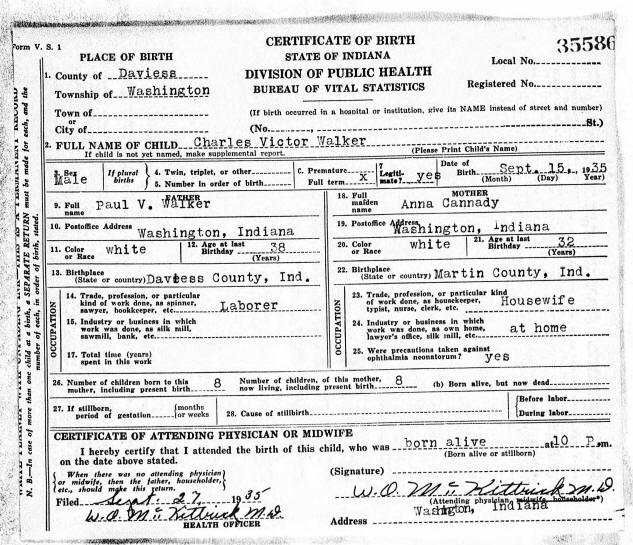 Form V. S. 1
CERTIFICATE OF BIRTH
35586
PLACE OF BIRTH
STATE OF INDIANA
Local No.
1. County of Daviess
DIVISION OF PUBLIC HEALTH
Township of Washington
BUREAU OF VITAL STATISTICS
Registered No.
Town of
(If birth occurred in a hospital or institution, give its NAME instead of street and number)
or
City of
(No. , St.)
2. FULL NAME OF CHILD Charles Victor Walker
If child is not yet named, make supplemental report.
(Please Print Child's Name)
3. Sex Male
If plural births
4. Twin, triplet, or other
5. Number in order of birth
6. Premature
Full term x
7 Legiti-mate? yes
Date of Birth Sept. 15, 1935
(Month) (Day) Year)
FATHER
9. Full name Paul V. Walker
10. Postoffice Address Washington, Indiana
11. Color or Race white
12. Age at last Birthday 38
(Years)
13. Birthplace (State or country) Daviess County, Ind.
OCCUPATION
14. Trade, profession, or particular
kind of work done, as spinner,
sawyer, bookkeeper, etc. Laborer
15. Industry or business in which
work was done, as silk mill,
sawmill, bank, etc.
17. Total time (years)
spent in this work
MOTHER
18. Full maiden name Anna Cannady
19. Postoffice Address Washington, Indiana
20. Color or Race white
21. Age at last Birthday 32
(Years)
22. Birthplace (State or country) Martin County, Ind.
OCCUPATION
23. Trade, profession, or particular kind
of work done, as housekeeper,
typist, nurse, clerk, etc. Housewife
24. Industry or business in which
work was done, as own home,
lawyer's office, silk mill, etc. at home
25. Were precautions taken against
ophthalmia neonatorum? yes
26. Number of children born to this
mother, including present birth 8
Number of children, of this mother,
now living, including present birth 8
(b) Born alive, but now dead
27. If stillborn,
period of gestation
months
or weeks
28. Cause of stillbirth
Before labor
During labor
CERTIFICATE OF ATTENDING PHYSICIAN OR MIDWIFE
I hereby certify that I attended the birth of this child, who was born alive at 10 P.m.
on the date above stated.
(Born alive or stillborn)
When there was no attending physician
or midwife, then the father, householder,
etc., should make this return.
(Signature)
W. O. McKittrick M.D.
(Attending physician, midwife, householder*)
Filed Sept. 27 1935
W. O. McKittrick M.D.
HEALTH OFFICER
Address Washington, Indiana
N. B.—In case of more than one child at a birth, a SEPARATE RETURN must be made for each, and the
number of each, in order of birth, stated.